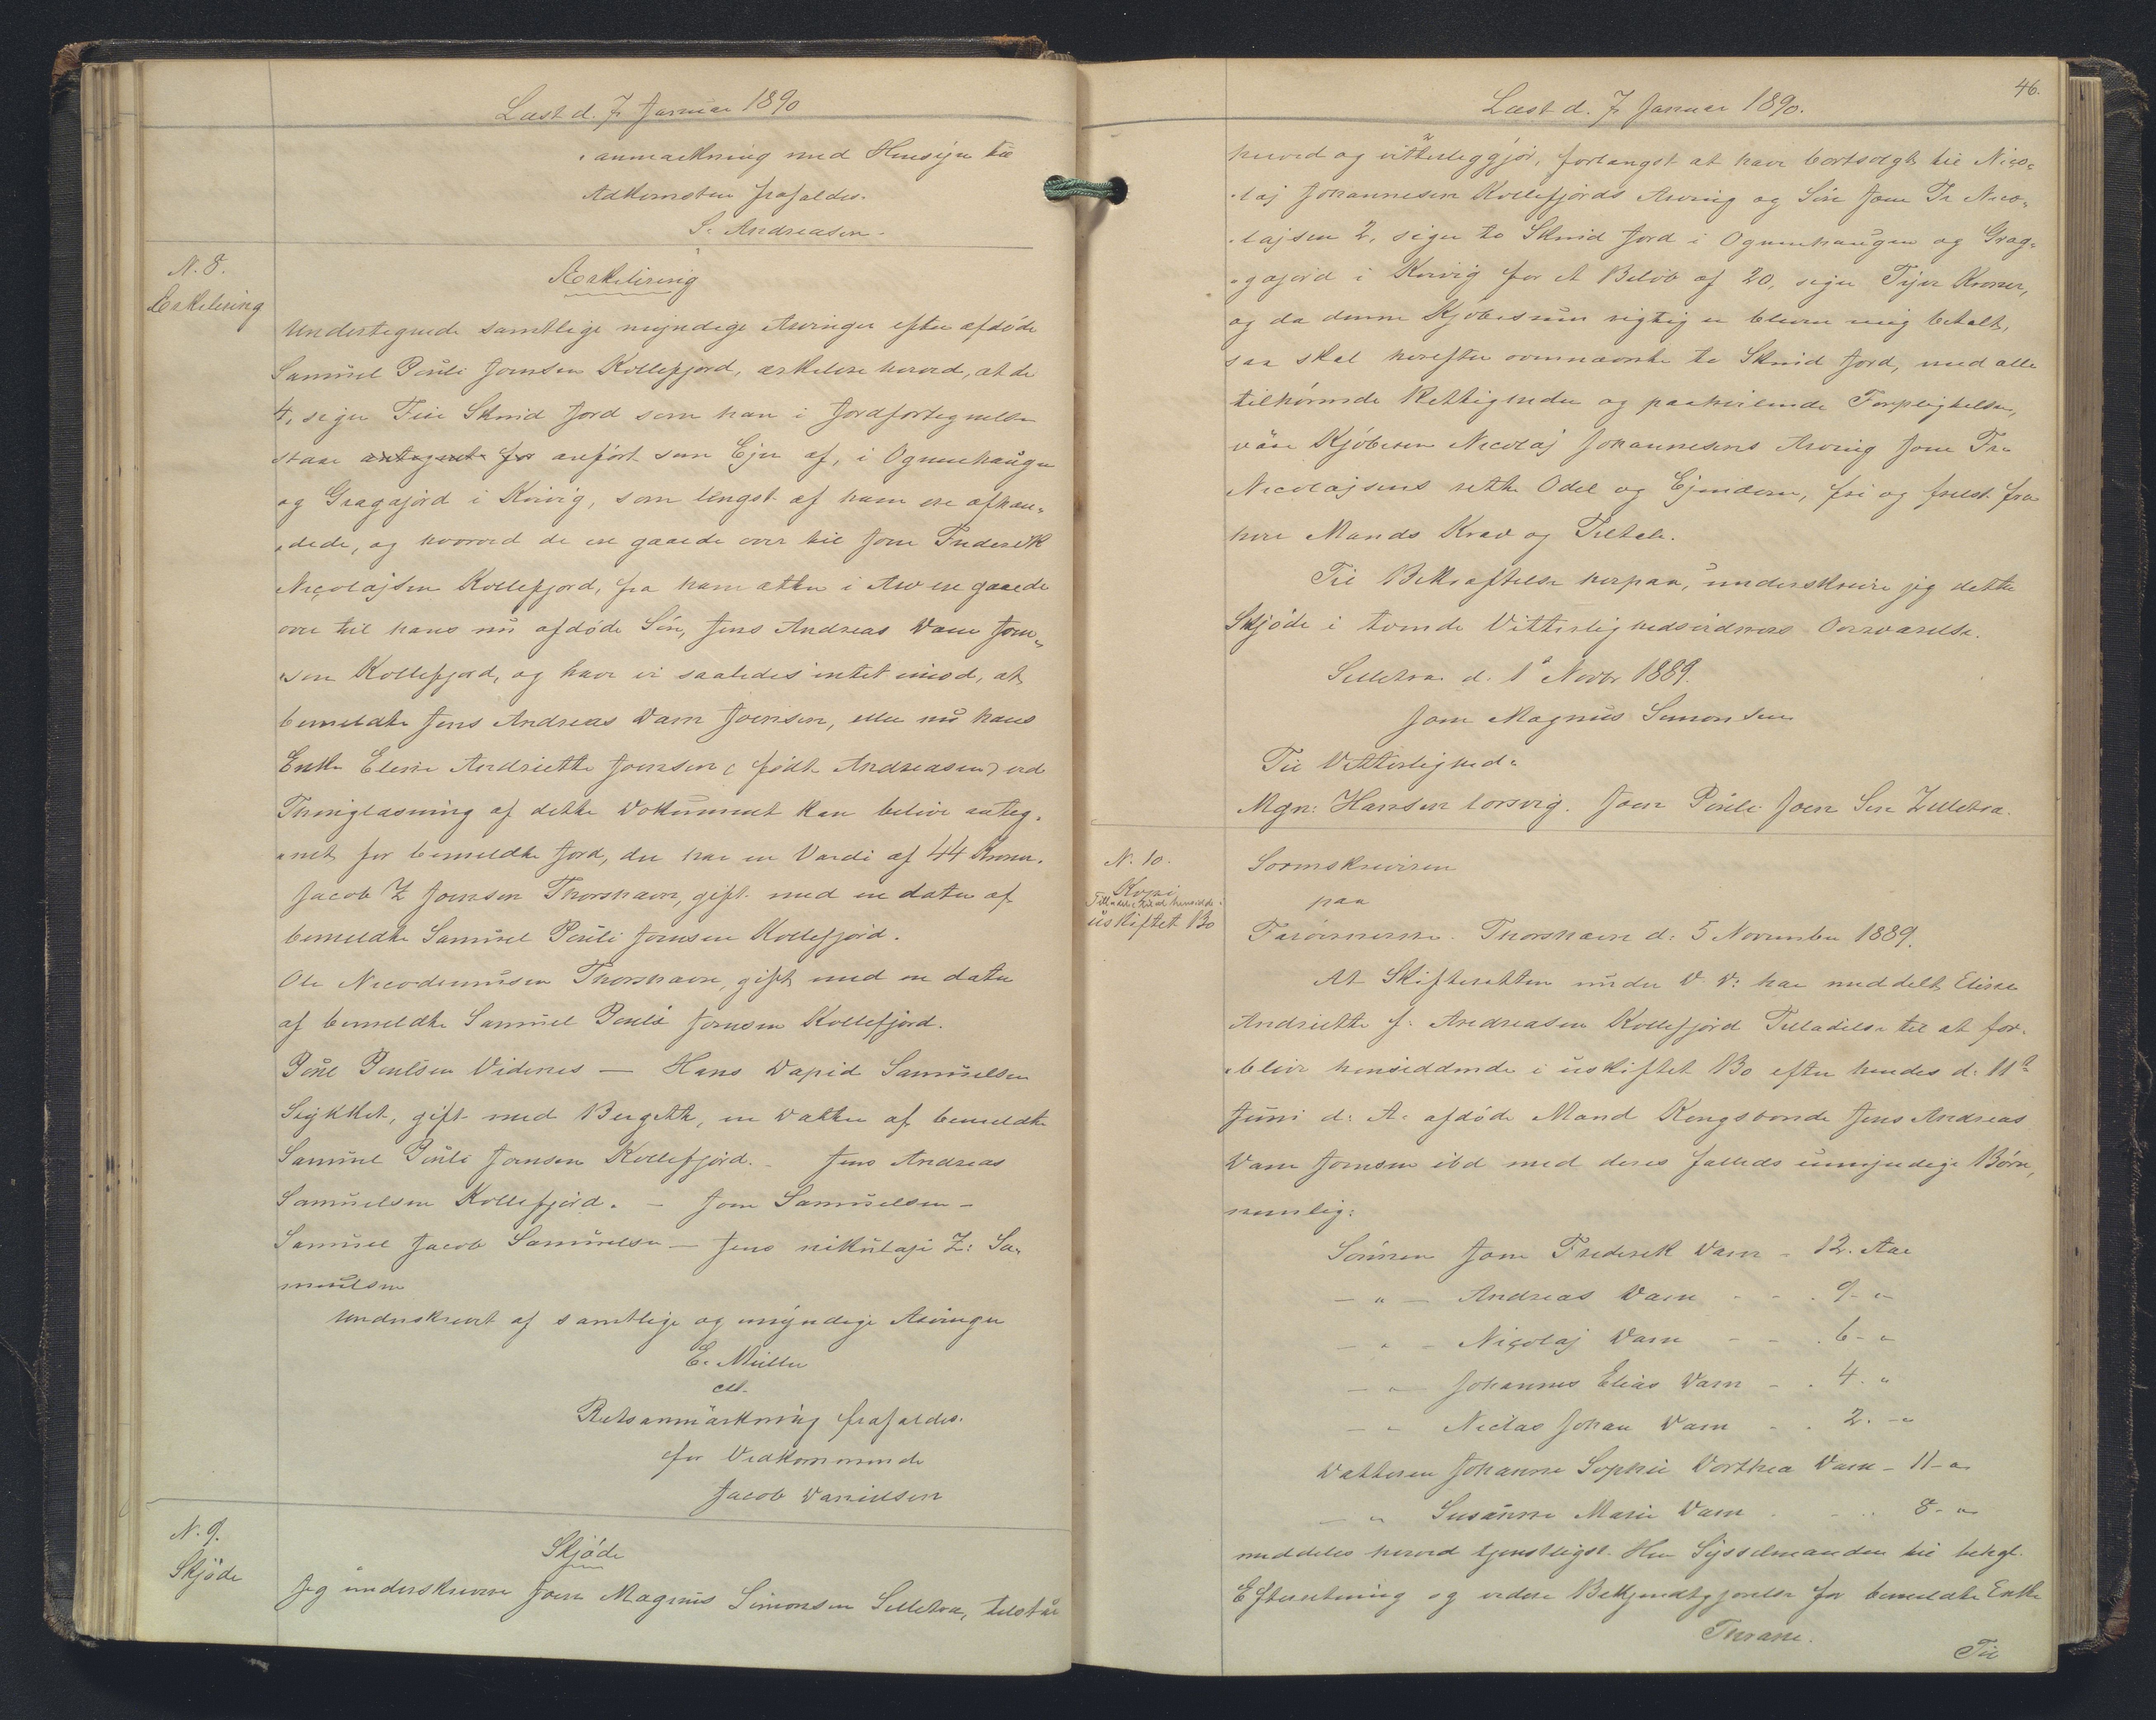 Læst d. 7 Januar 1890
anmærkning med Hensyn til
Adkomsten frafaldes.
S. Andreasen.
N. 8.
Erklæring
Ærklæring
Undertegnede samtlige myndige Arvinger efter afdöde
Samuel Pouli Joensen Kollefjord, ærklære herved, at de
4, siger Fire Skind Jord som han i Jordfortegnelsen
staar antegnet for anfört som Ejer af, i Ognunehaugen
og Gragajörd i Kvivig, som længst af ham ere afhæn-
dede, og hvorved de ere gaaede over til Joen Frederik
Nicolajsen Kollefjord, fra ham atter i Arv ere gaaede
over til hans nu afdöde Sön, Jens Andreas Dam Joen-
sen Kollefjord, og have vi saaledes intet imod, at
bemeldte Jens Andreas Dam Joensen, eller nu hans
Enke Elsine Andriette Joensen (födt Andreasen) ved
Thinglæsning af dette Dokument kan blive anteg-
net for bemeldte Jord, der har en Værdi af 44 Kroner.
Jacob Z Joensen Thorshavn, gift med en dater af
bemeldte Samuel Pouli Joensen Kollefjord.
Ole Nicodemusen Thorshavn, gift med en dater
af bemeldte Samuel Pouli Joensen Kollefjord.
Poul Poulsen Videnes — Hans David Samuelsen
gift med Bergette, en Datter af bemeldte
Samuel Pouli Joensen Kollefjord. – Jens Andreas
Samuelsen Kollefjord. – Joen Samuelsen –
Samuel Jacob Samuelsen – Jens nikulaji Z: Sa-
muelsen
Underskrevet af samtlige og myndige Arvinger
E. Müller
cst.
Retsanmärkning frafaldes.
for Vedkommende
Jacob Danielsen
N. 9.
Skjöde
Skjöde
Jeg underskrevne Joen Magnus Simonsen Selletræ, tilstår
46.
Læst d. 7 Januar 1890.
herved og vitterliggjör, forlængst at have bortsolgt til Nico-
laj Johannesen Kollefjords Arving og Sön Joen Fr Nico-
lajsen 2, siger to Skind Jord i Ognunehaugen og Grag-
gajörd i Kvivig for et Belöb af 20, siger Tyve Kroner,
og da denne Kjöbesum rigtig er bleven mig betalt,
saa skal herefter ovennævnte to Skind Jord, med alle
tilhörende Rettigheder og paahvilende Forpligtelser,
väre Kjöberen Nicolaj Johannesens Arving Joen Fr.
Nicolajsens rette Odel og Ejendom, fri og frelst fra
hver Mands Krav og Tiltale.
Til Bekræftelse herpaa, underskriver jeg dette
Skjöde i tvende Vitterlighedsvidners Overværelse.
Selletræ d. 1 Novbr 1889.
Joen Magnus Simonsen
Til Vitterlighed.
Mgn: Hansen Lorvig. Joen Pouli Joen Sen Zelletræ.
N. 10.
Kopi
Tilladelse til at hensidde i
uskiftet Bo
Sorenskriveren
paa
Færöisnerne. Thorshavn d: 5 November 1889.
At Skifteretten under D. D: har meddelt Elsine
Andriette f: Andreasen Kollefjord Tilladelse til at for-
blive hensiddende i uskiftet Bo efter hendes d: 11t
Juni d: A: afdöde Mand Kongsbonde Jens Andreas
Dam Joensen ibd med deres fælleds umyndige Börn,
nemlig:
Sönnen Joen Frederik Dam - 12. Aar
– " – Andreas Dam - - . 9 - "
– " – Nicolaj Dam - - . 6 - "
– " Johannes Elias Dam - . 4. "
– " Niclas Johan Dam - . 2. - "
Datteren Johanne Sophie Dorthea Dam - 11 - "
– " Susanne Marie Dam . - .. 8 - "
meddeles herved tjenstligst. Herr Sysselmanden til behgl.
Efterretning og videre Bekjendtgjörelse for bemeldte Enke
Thrane.
Til